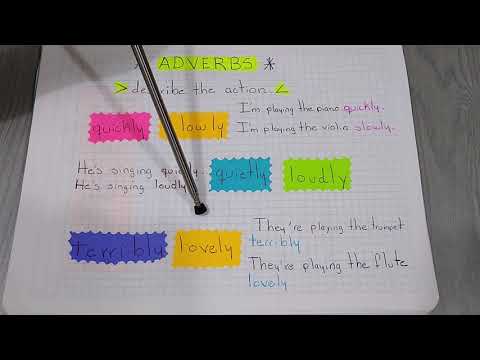 * ADVERBS *
> describe the action <
I'm playing the piano quickly.
quickly slowly I'm playing the violin slowly.
He's singing quietly. quietly loudly
He's singing loudly
They're playing the trumpet
terribly lovely terribly
They're playing the flute
lovely